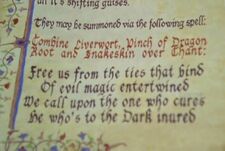 all it's shifting guises.
They may be summoned via the following spell:
Combine Liverwort, Pinch of Dragon
Root and Snakeskin over Thant:
Free us from the ties that bind
Of evil magic entertwined
We call upon the one who cures
He who's to the Dark inured